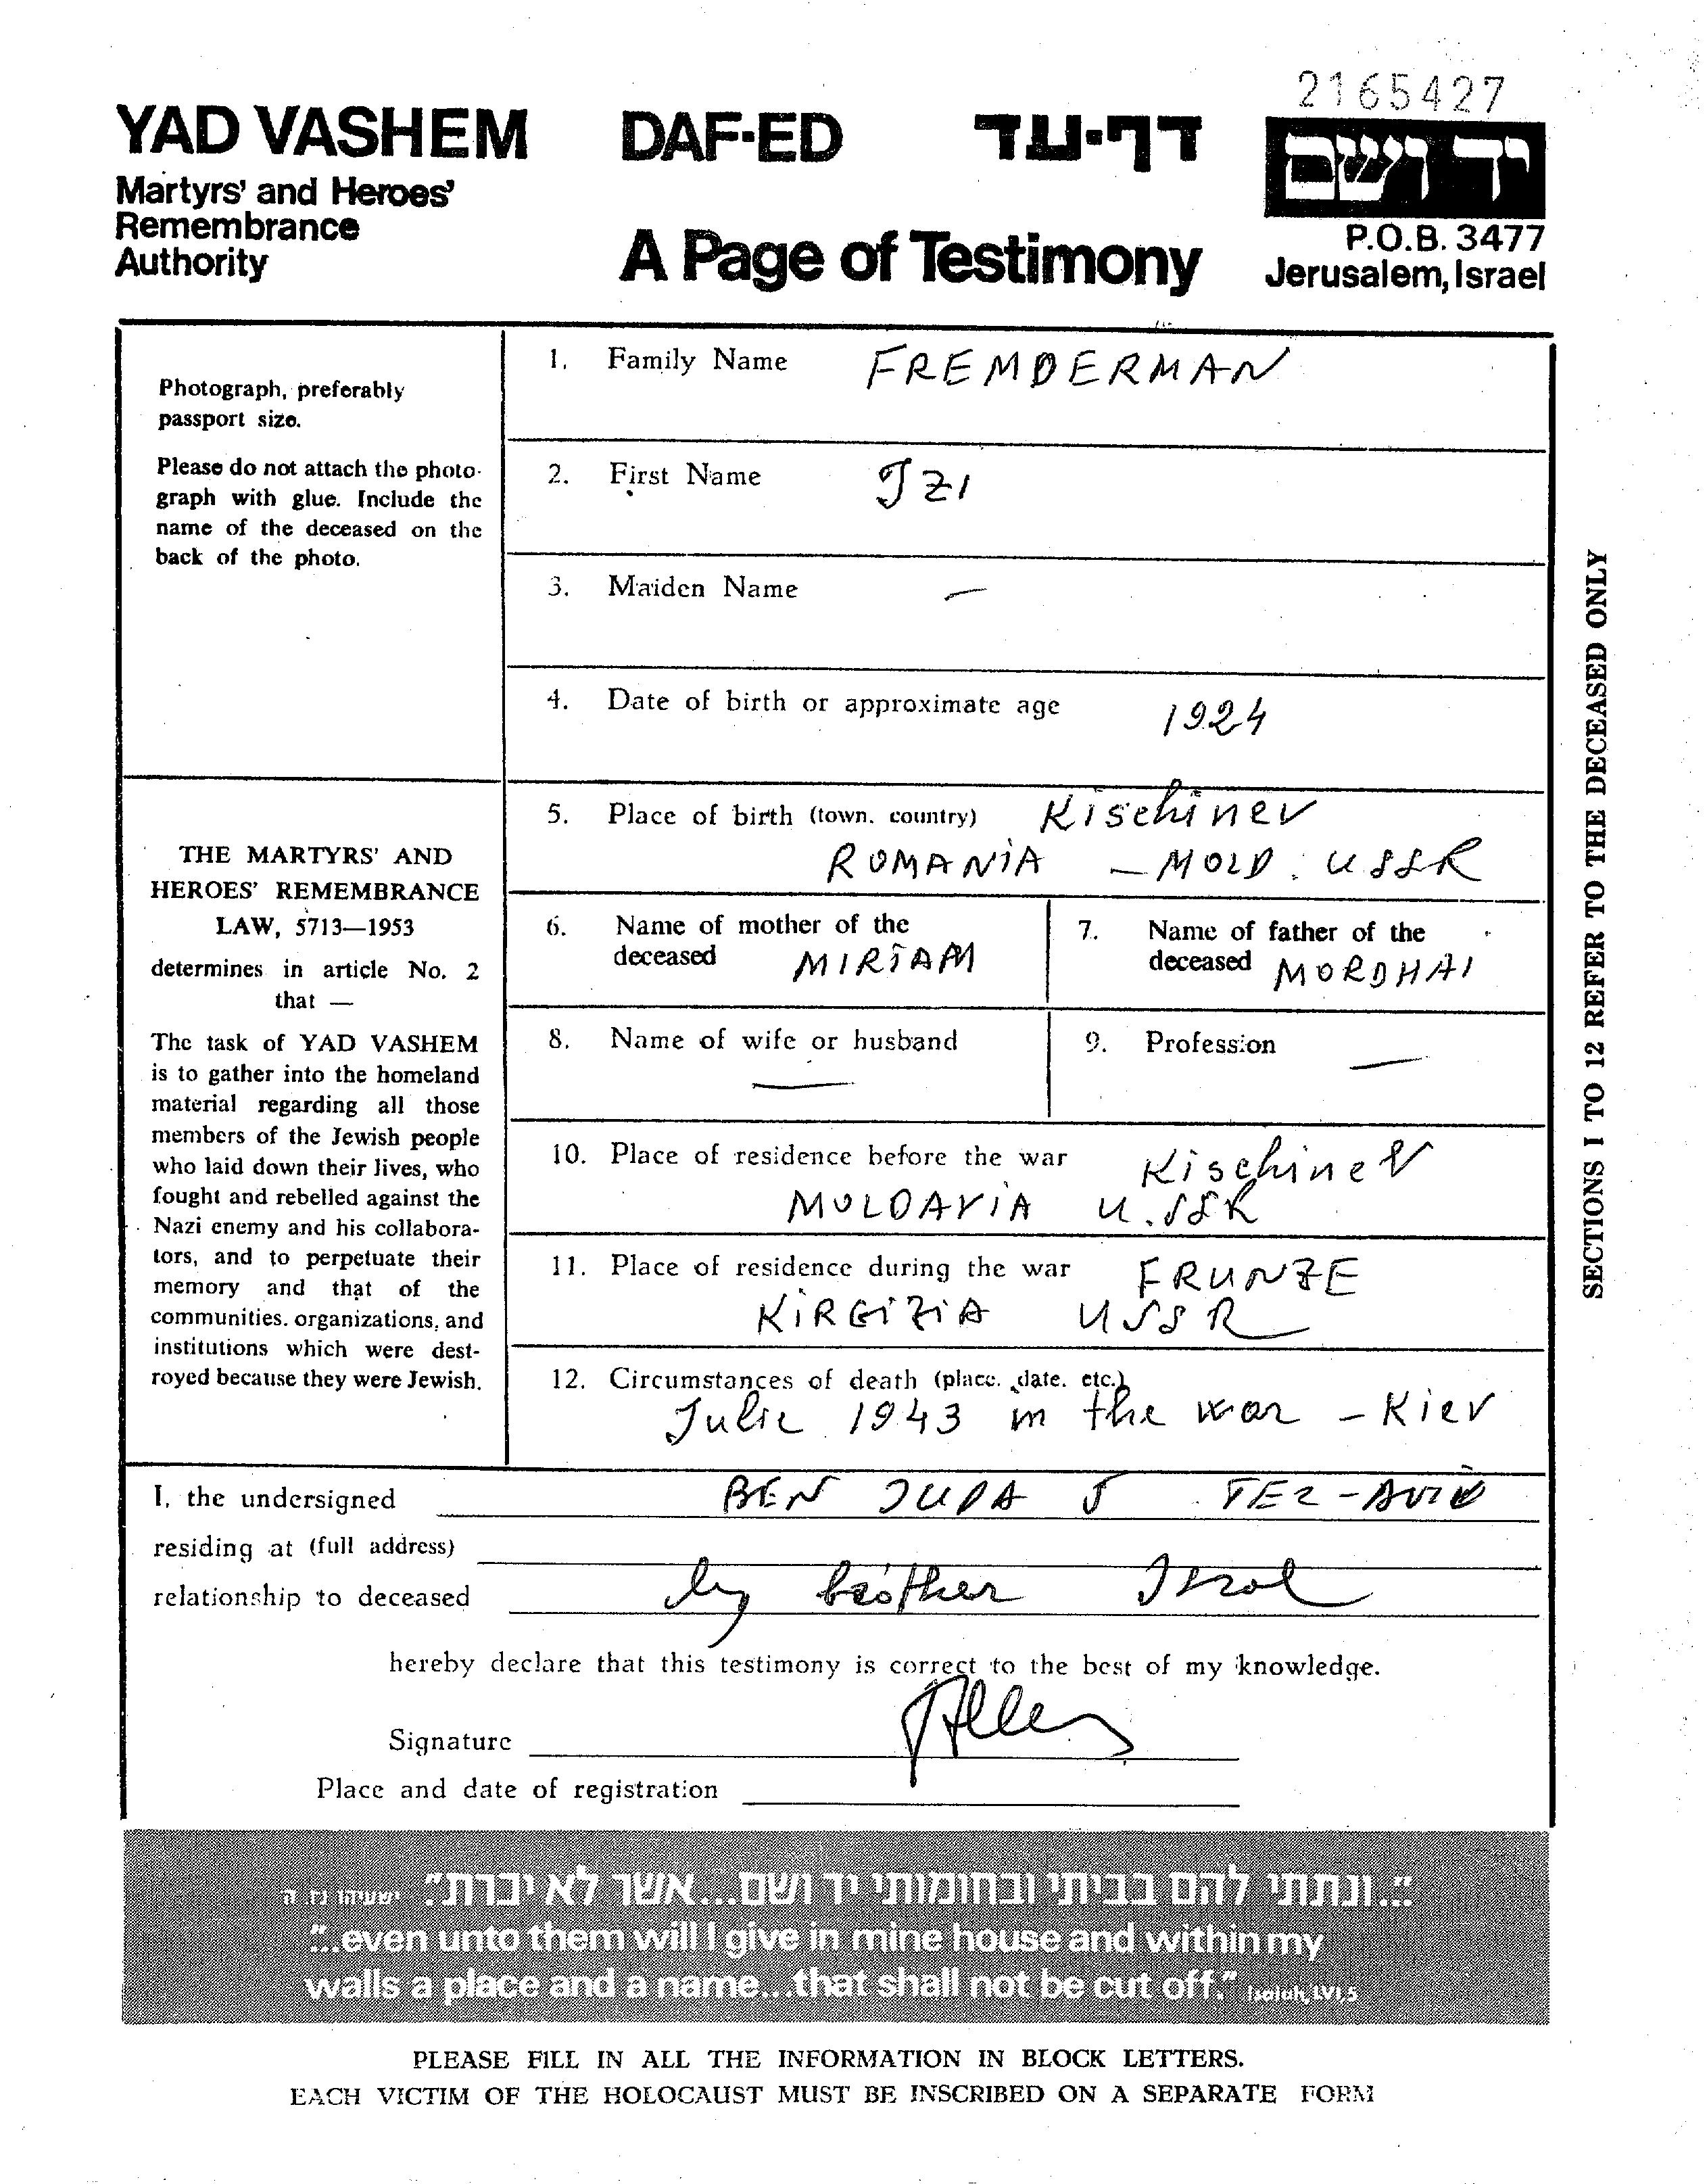 2165427
YAD VASHEM DAF-ED דף-עד יד ושם
Martyrs' and Heroes'
Remembrance
Authority
A Page of Testimony
P.O.B. 3477
Jerusalem, Israel
Photograph, preferably
passport size.
Please do not attach the photo-
graph with glue. Include the
name of the deceased on the
back of the photo.
THE MARTYRS' AND
HEROES' REMEMBRANCE
LAW, 5713—1953
determines in article No. 2
that —
The task of YAD VASHEM
is to gather into the homeland
material regarding all those
members of the Jewish people
who laid down their lives, who
fought and rebelled against the
Nazi enemy and his collabora-
tors, and to perpetuate their
memory and that of the
communities, organizations, and
institutions which were dest-
royed because they were Jewish.
1. Family Name FREMDERMAN
2. First Name IZI
3. Maiden Name —
4. Date of birth or approximate age 1924
5. Place of birth (town, country) Kischinev
ROMANIA — MOLD. USSR
6. Name of mother of the
deceased MIRIAM
7. Name of father of the
deceased MORDHAI
8. Name of wife or husband —
9. Profession —
10. Place of residence before the war Kischinev
MOLDAVIA U.SSR
11. Place of residence during the war FRUNZE
KIRGIZIA USSR
12. Circumstances of death (place, date, etc.)
Julie 1943 in the war - Kiev
SECTIONS 1 TO 12 REFER TO THE DECEASED ONLY
I, the undersigned BEN JUDA 5 TEL-AVIV
residing at (full address)
relationship to deceased brother
hereby declare that this testimony is correct to the best of my knowledge.
Signature
Place and date of registration
"...ונתתי להם בביתי ובחומותי יד ושם...אשר לא יכרת" ישעיהו נו, ה
"...even unto them will I give in mine house and within my
walls a place and a name...that shall not be cut off." Isaiah, LVI,5
PLEASE FILL IN ALL THE INFORMATION IN BLOCK LETTERS.
EACH VICTIM OF THE HOLOCAUST MUST BE INSCRIBED ON A SEPARATE FORM